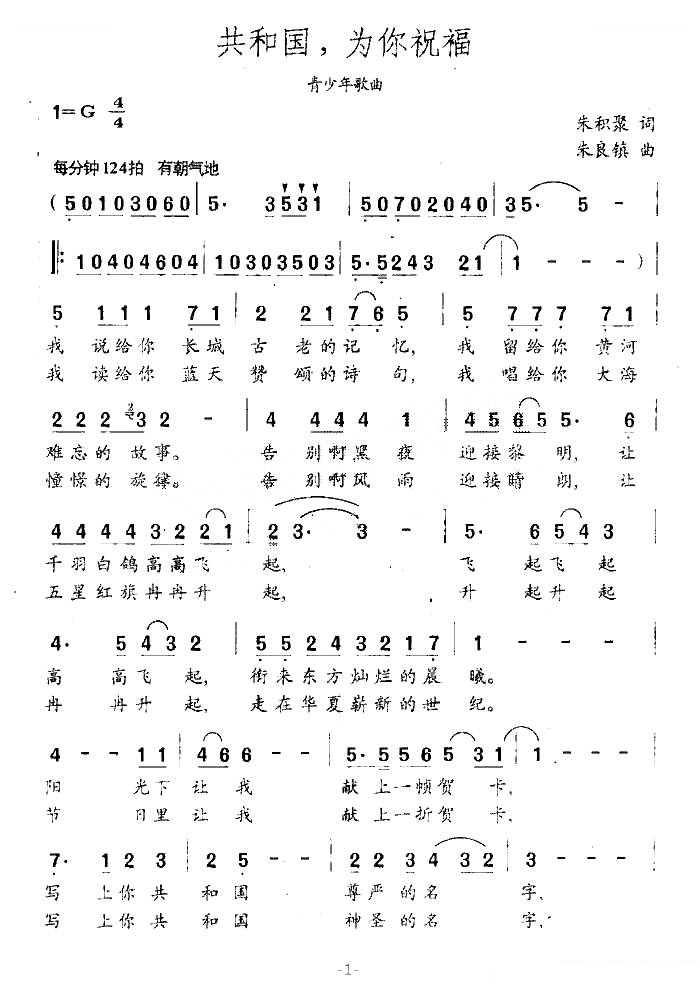 共和国，为你祝福
青少年歌曲
1=G 4/4
朱积聚 词
朱良镇 曲
每分钟124拍 有朝气地
( 50103060 | 5· 3531 | 50702040 | 35· 5 - |
‖: 10404604 | 10303503 | 5·5243 21 | 1 - - - ) |
5 111 71 | 2 2176 5 | 5 777 71 |
我 说给你 长城 古 老的记 忆, 我 留给你 黄河
我 读给你 蓝天 赞 颂的诗 句, 我 唱给你 大海
222 32 2 - | 4 444 4 1 | 4565 5· 6 |
难忘的 故事。 告 别啊黑 夜 迎接黎 明, 让
憧憬的 旋律。 告 别啊风 雨 迎接晴 朗, 让
4444 32221 | 23· 3 - | 5· 6543 |
千羽白鸽高高飞 起, 飞 起飞起
五星红旗冉冉升 起, 升 起升起
4· 5432 | 55243217 | 1 - - - |
高 高飞 起, 衔来东方灿烂的晨 曦。
冉 冉升 起, 走在华夏崭新的世 纪。
4 - - 11 | 1466 - - | 5·565 531 | 1 - - - |
阳 光下让我 献上一帧贺 卡,
节 日里让我 献上一折贺 卡,
7· 1 2 3 | 2 5 - - | 2 2 3 4 32 | 3 - - - |
写 上你共 和国 尊严的名 字,
写 上你共 和国 神圣的名 字,
-1-